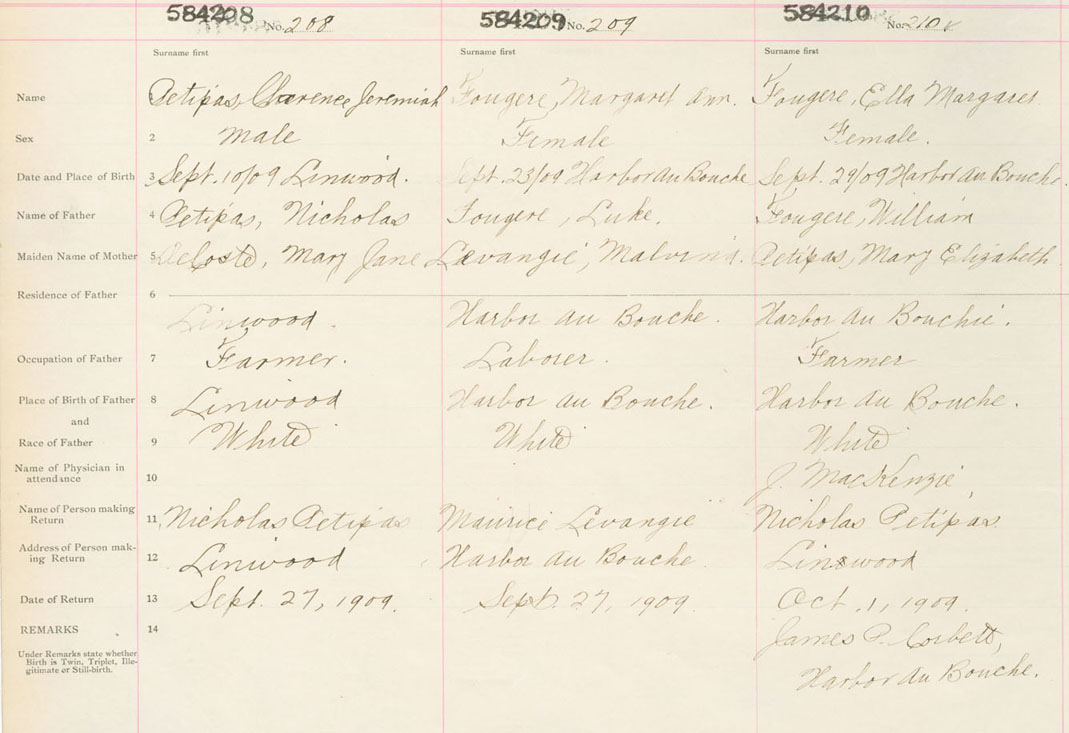 584208 No. 208 584209 No. 209 584210 No. 210
Surname first Surname first Surname first
Name Petipas, Clarence Jeremiah Fougere, Margaret Ann. Fougere, Ella Margaret
Sex 2 Male Female Female.
Date and Place of Birth 3 Sept. 10/09 Linwood. Sept. 23/09 Harbor au Bouche Sept. 29/09 Harbor au Bouche.
Name of Father 4 Petipas, Nicholas Fougere, Luke. Fougere, William
Maiden Name of Mother 5 DeCoste, Mary Jane Levangie, Malvina. Petipas, Mary Elizabeth
Residence of Father 6
Linwood. Harbor au Bouche. Harbor au Bouchie.
Occupation of Father 7 Farmer. Laborer. Farmer
Place of Birth of Father 8 Linwood Harbor au Bouche. Harbor au Bouche.
and
Race of Father 9 White White White
Name of Physician in
attendance 10 J. MacKenzie,
Name of Person making
Return 11 Nicholas Petipas Maurice Levangie Nicholas Petipas.
Address of Person mak-
ing Return 12 Linwood Harbor au Bouche Linwood
Date of Return 13 Sept. 27, 1909. Sept. 27, 1909. Oct. 1, 1909.
REMARKS 14 James P. Corbett,
Under Remarks state whether
Birth is Twin, Triplet, Ille-
gitimate or Still-birth.
Harbor au Bouche.